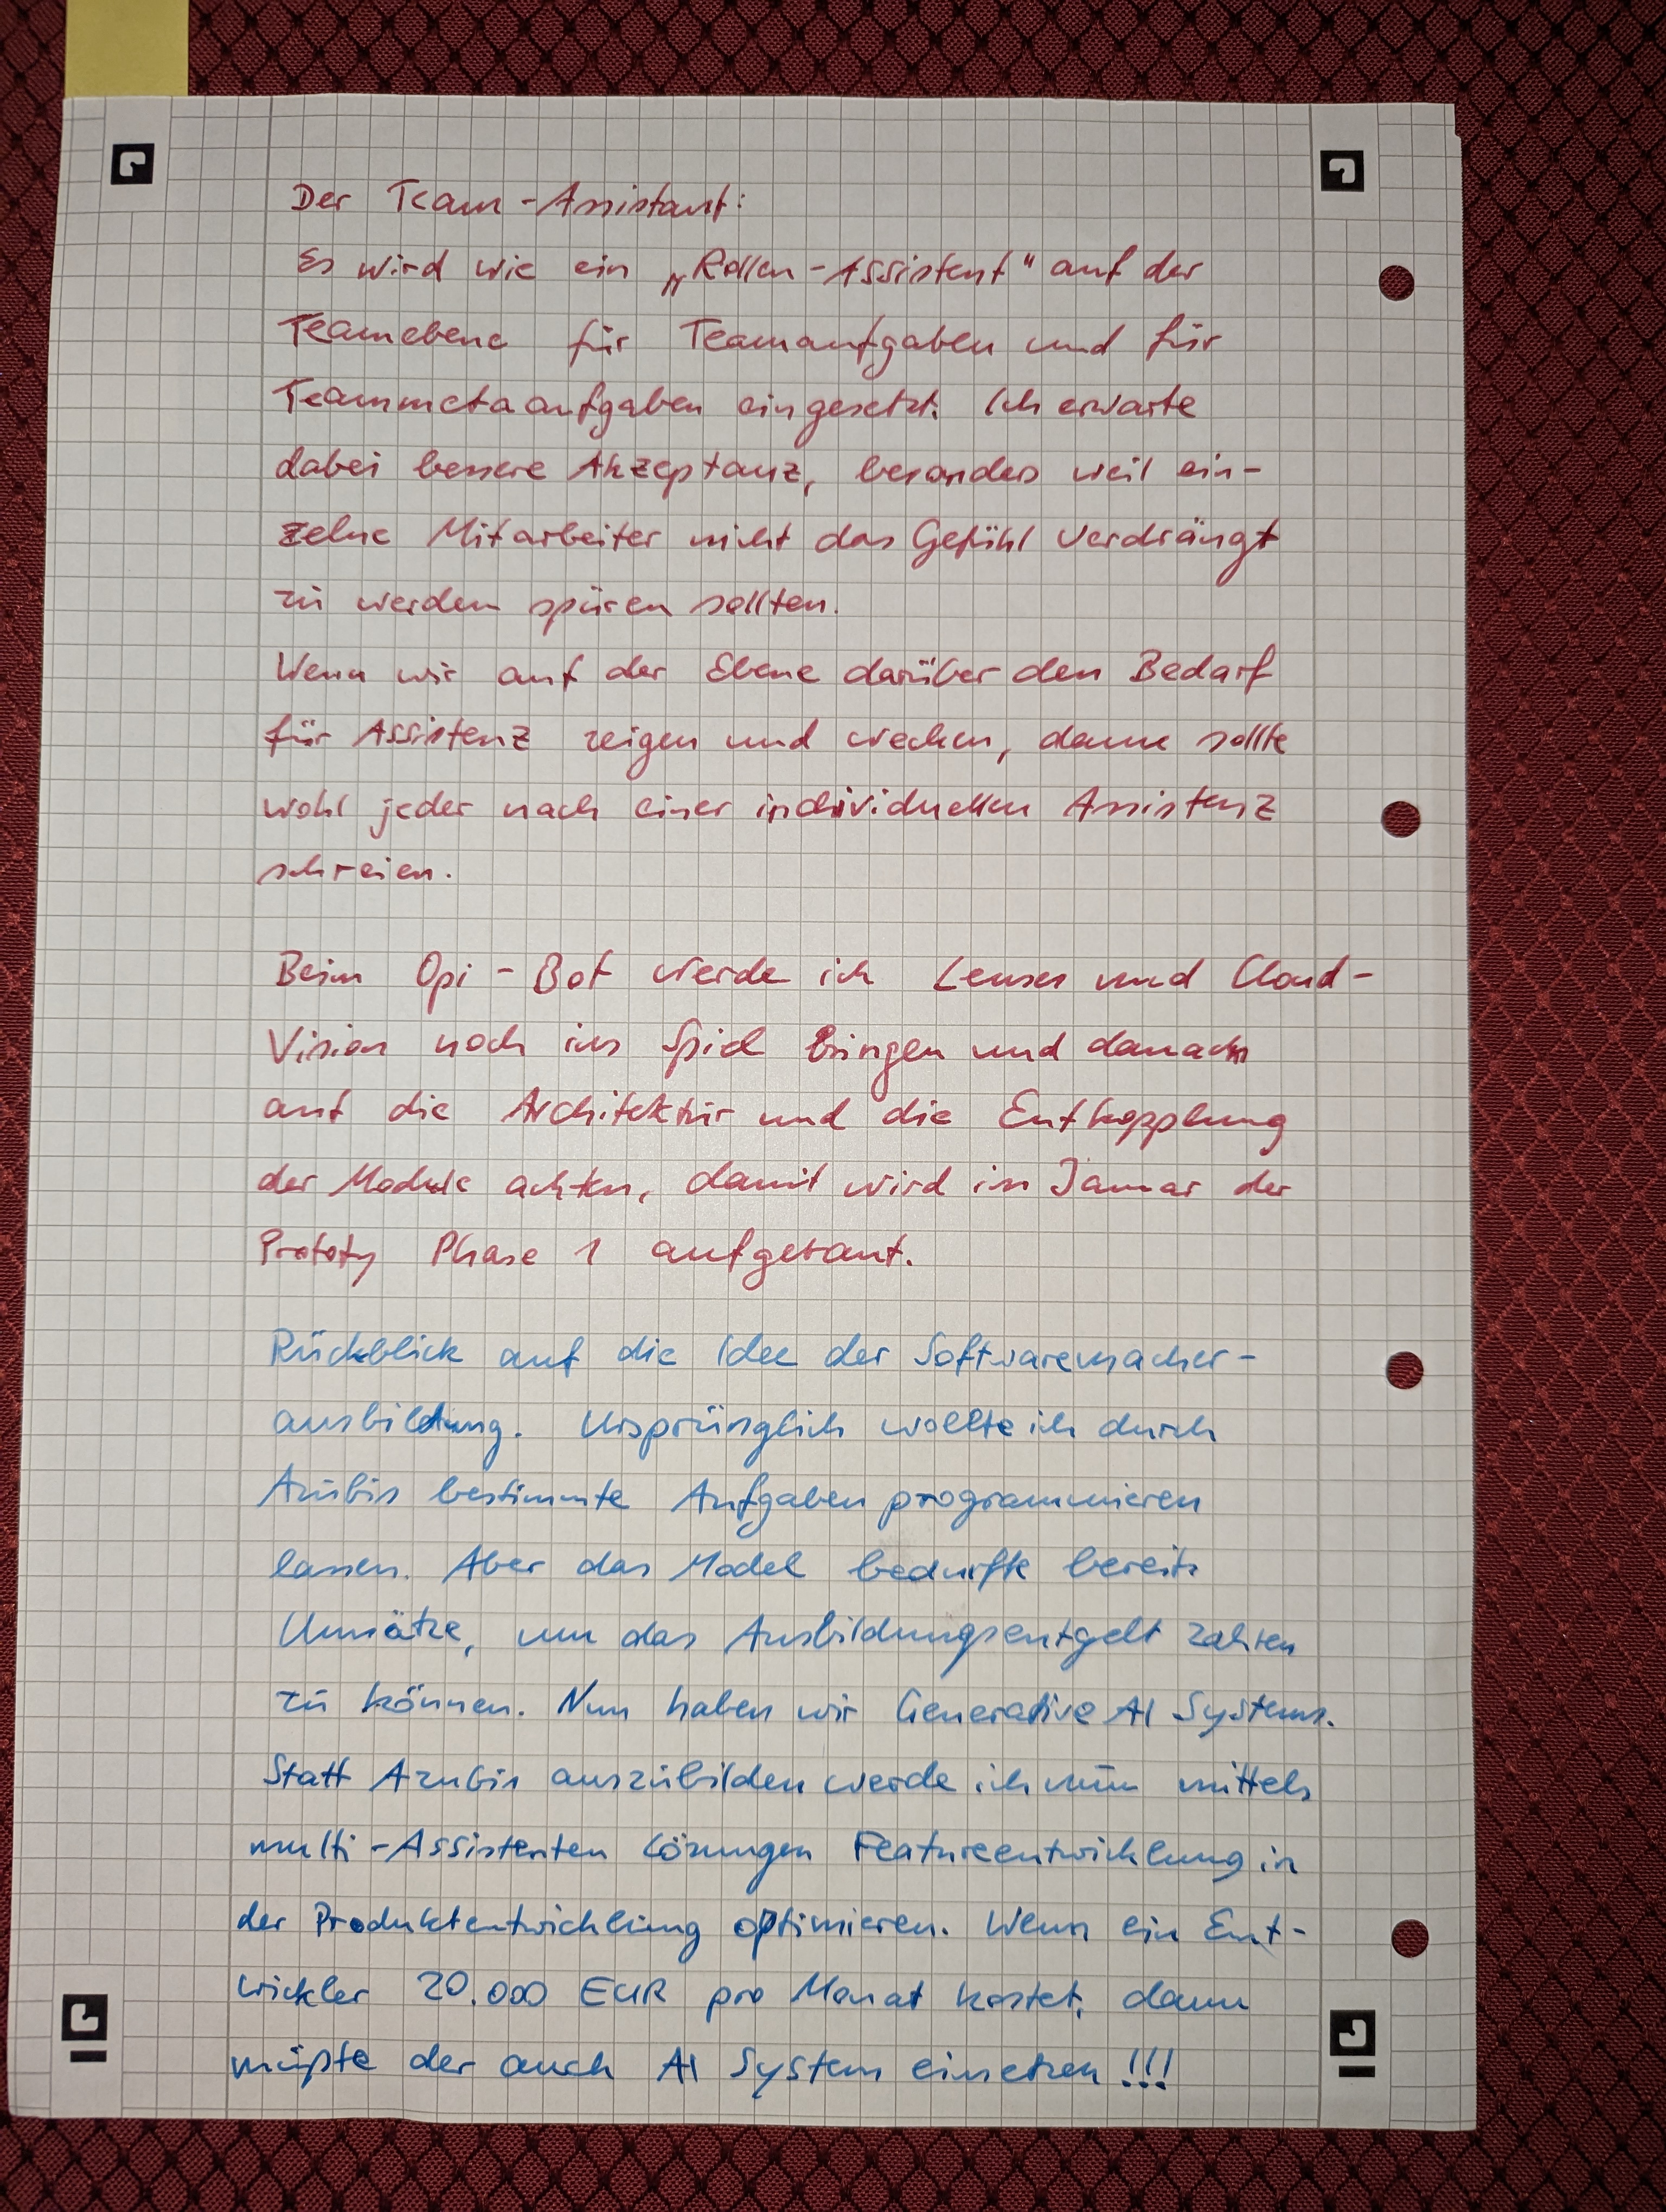 Der Team-Assistant:
Es wird wie ein „Rollen-Assistent" auf der
Teamebene für Teamaufgaben und für
Teammetaaufgaben eingesetzt. Ich erwarte
dabei bessere Akzeptanz, besonders weil ein-
zelne Mitarbeiter nicht das Gefühl verdrängt
zu werden spüren sollten.
Wenn wir auf der Ebene darüber den Bedarf
für Assistenz zeigen und wecken, dann sollte
wohl jeder nach einer individuellen Assistenz
schreien.
Beim Opi-Bot werde ich Lenses und Cloud-
Vision noch ins Spiel bringen und danach
auf die Architektur und die Entkopplung
der Module achten, damit wird im Januar der
Prototyp Phase 1 aufgebaut.
Rückblick auf die Idee der Softwaremacher-
ausbildung. Ursprünglich wollte ich durch
Azubis bestimmte Aufgaben programmieren
lassen. Aber das Model bedurfte bereits
Umsätze, um das Ausbildungsentgelt zahlen
zu können. Nun haben wir Generative AI Systems.
Statt Azubis auszubilden werde ich nun mittels
multi-Assistenten Lösungen Featureentwicklung in
der Produktentwicklung optimieren. Wenn ein Ent-
wickler 20.000 EUR pro Monat kostet, dann
müßte der auch AI System einsetzen!!!